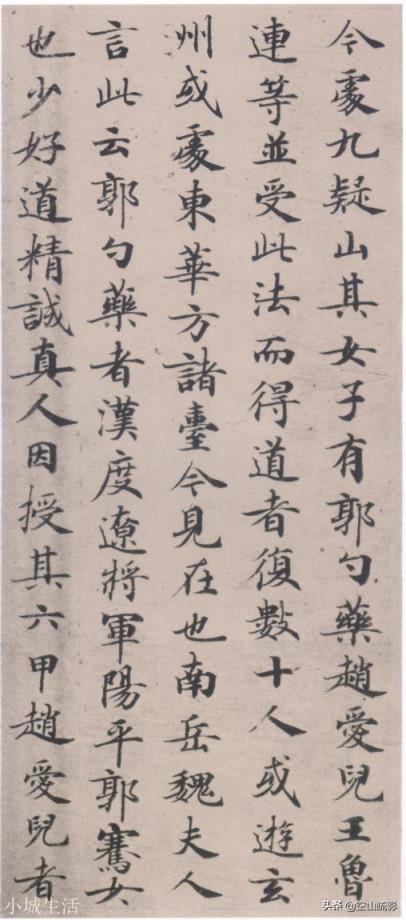 今處九疑山其女子有郭勺藥趙愛兒王魯
連等並受此法而得道者復數十人或遊玄
州或處東華方諸臺今見在也南岳魏夫人
言此云郭勺藥者漢度遼將軍陽平郭騫女
也少好道精誠真人因授其六甲趙愛兒者
小城生活
头条 @空山疏影